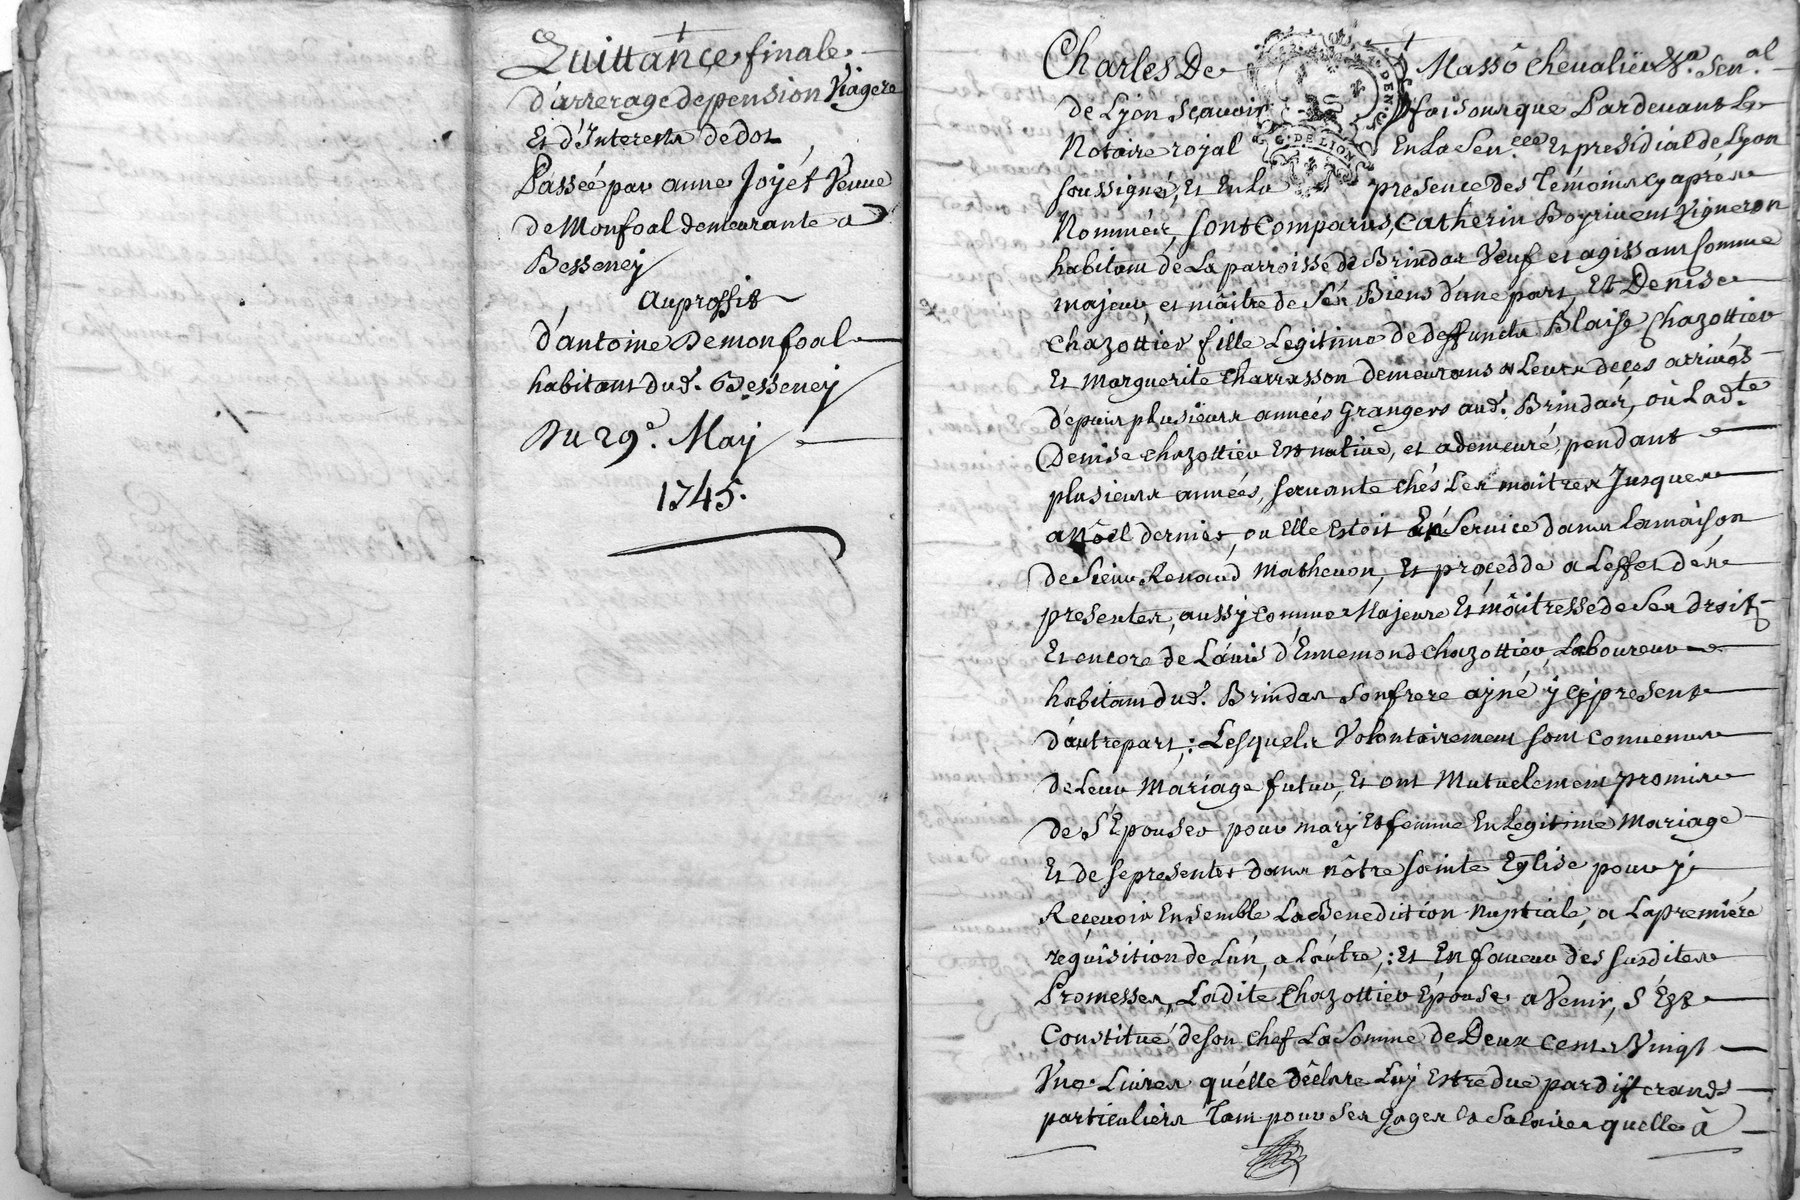 Quittance finale
d'arrerage de pension Viagere
Et d'Interests de dot
Passée par anne Joyét Veuve
de Monfoal demeurante a
Besseney
au proffit
d'antoine De monfoal
habitant dud. Besseney
Du 29e. May
1745.
Charles De Massô chevalier Sen.al
de Lyon sçavoir faisons que Pardevant Le
Notaire royal En la Sen.cee Et presidial de Lyon
soussigné, Et En la presence des Témoins cy aprés
Nommés, sont comparus, Catherin Boyrivent Vigneron
habitant de La parroisse de Brindas Veuf et agissant comme
majeur, et maître de Sés Biens d'une part, Et Denise
Chazottier fille Legitime de deffuncts Blaise Chazottier
Et Marguerite Charrasson demeurans a Leurs deces arrivés
depuis plusieurs années Grangers aud. Brindas, où Lad.te
Denise chazottier Est native, et a demeuré, pendant
plusieurs années, servante chés Les maitres Jusques
a Nôel dernier, ou Elle Estoit En Service dans La maison
de Sieur Renaud Mathevon, Et procedde a L'effet dés
presentes, aussy comme Majeure Et mâitresse de Ses droits
Et encore de L'avis d'Ennemond chazottier, Laboureur
habitant dud. Brindas son frere ayné y cy present
d'autre part; Lesquels Volontairement sont convenus
de Leur Mariage futur, Et ont Mutuelement promis
de S'Epouser pour mary Et femme En Legitime Mariage
Et de se presenter dans nôtre sainte Eglise pour y
Recevoir Ensemble La Benediction Nuptiale, a La premiére
réquisition de L'un, a L'autre,: Et En faveur des susdites
Promesses, Ladite Chazottier Epouse a Venir, S'Est
Constitué de son chef La Somme de Deux Cents Vingt
Une Livres qu'élle déclare Luy Estre due par differands
particuliers Tant pour Ses Gages Et Salaires quelle à
G. DE LION